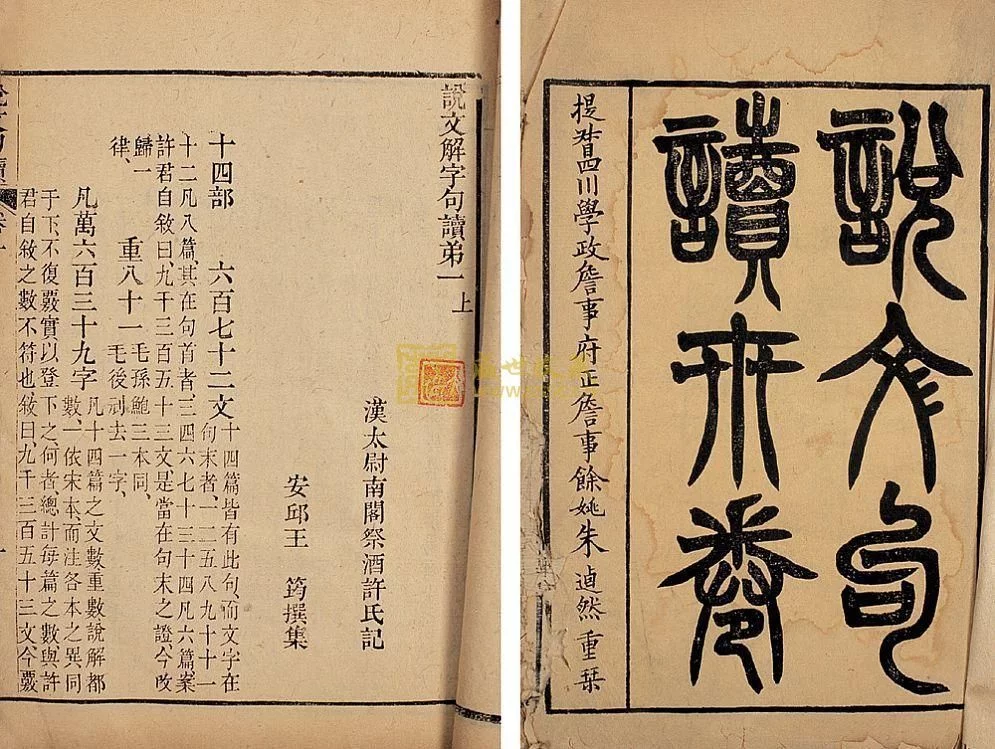 說文句
讀卅卷
提督四川學政詹事府正詹事餘姚朱逌然重栞
說文解字句讀弟一上
漢太尉南閣祭酒許氏記
安邱王 筠撰集
十四部 六百七十二文 十四篇皆有此句、而文字在
句末者、一二五八九十十一
十二凡八篇、其在句首者、三四六七十三十四凡六篇、案
許君自敘曰、九千三百五十三文、是當在句末之證、今改
歸一
律、
重八十一 毛孫鮑三本同、
毛後剜去一字、
凡萬六百三十九字 凡十四篇之文數重數說解都
數、一依宋本、而注各本之異同
于下、不復覈實以登下之、何者、總計每篇之數與許
君自敘之數不符也、敘曰、九千三百五十三文、今覈